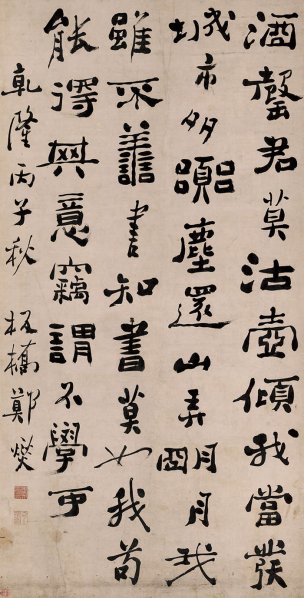 酒罄君莫沽壺傾我當發
城市多嚻塵還山弄明月我
雖不善書知書莫如我苟
能得其意竊謂不學可
乾隆丙子秋板橋鄭燮